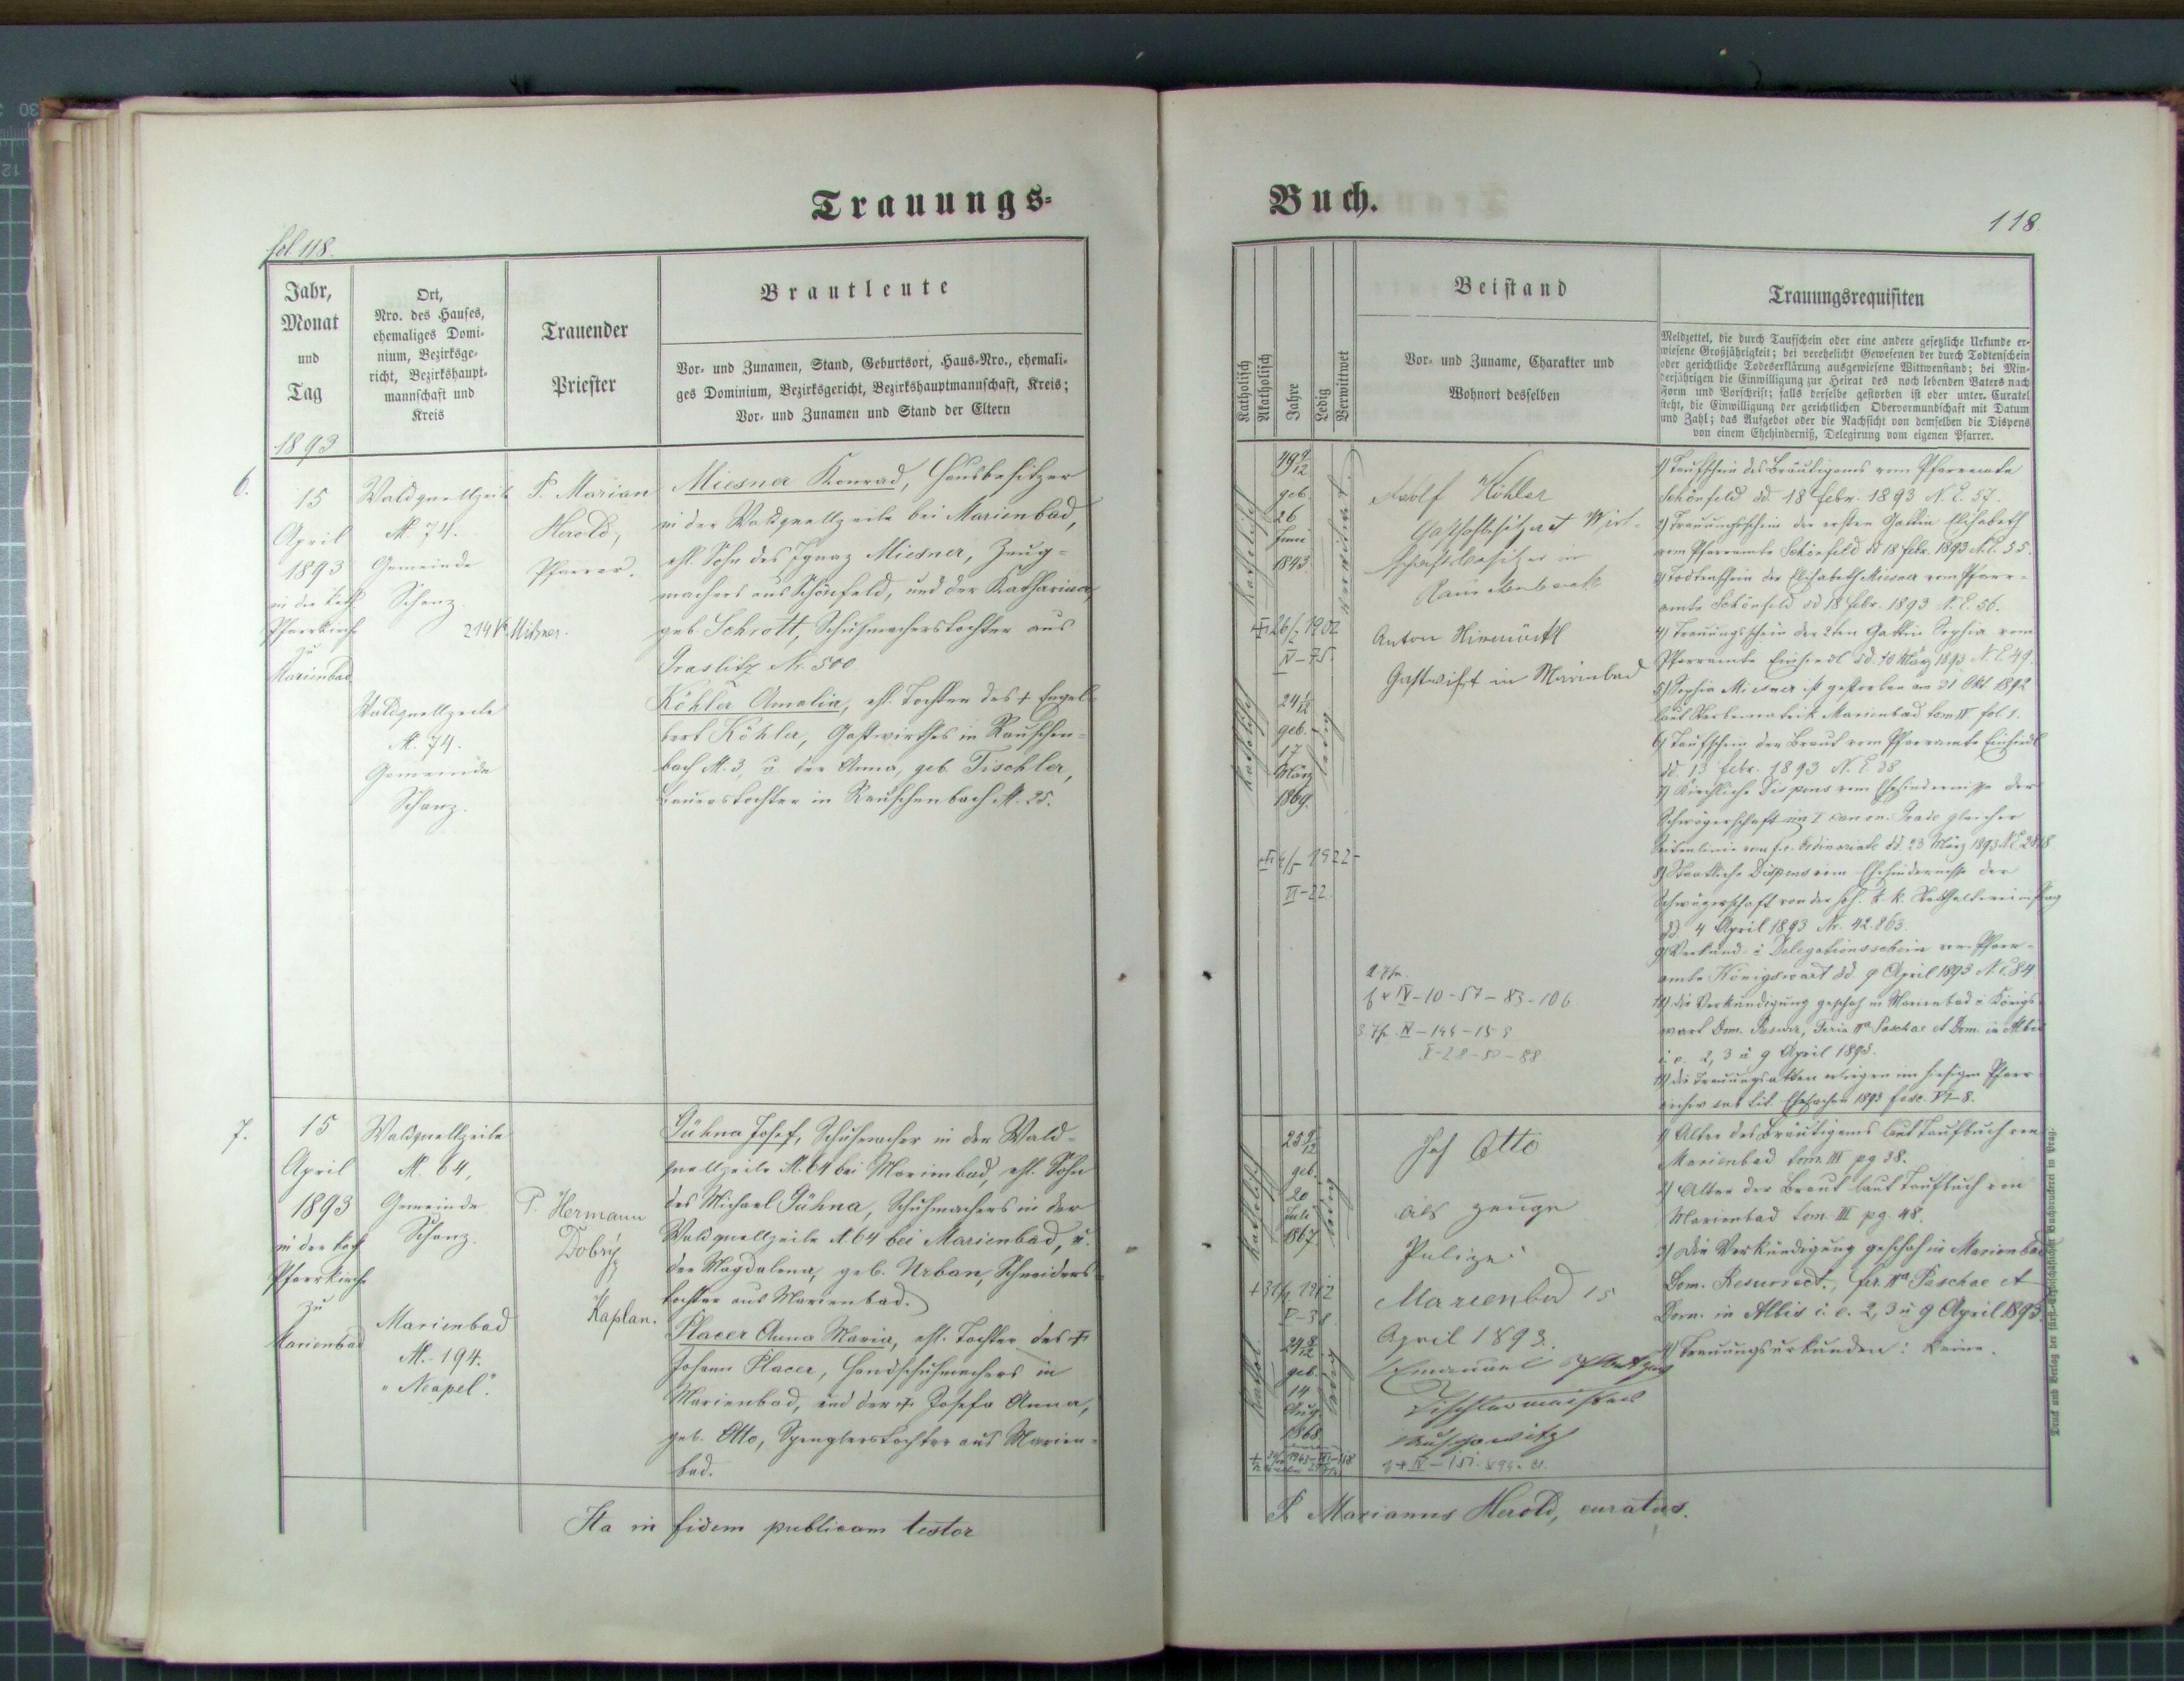 Trauungs-
Buch.
fol. 118.
118.
Jahr,
Monat
und
Tag
1893
Ort,
Nro. des Hauses,
ehemaliges Domi-
nium, Bezirksge-
richt, Bezirkshaupt-
mannschaft und
Kreis
Trauender
Priester
Brautleute
Vor- und Zunamen, Stand, Geburtsort, Haus-Nro., ehemali-
ges Dominium, Bezirksgericht, Bezirkshauptmannschaft, Kreis;
Vor- und Zunamen und Stand der Eltern
Katholisch
Akatholisch
Jahre
Ledig
Verwittwet
Beistand
Vor- und Zuname, Charakter und
Wohnort desselben
Trauungsrequisiten
Meldzettel, die durch Taufschein oder eine andere gesetzliche Urkunde er-
wiesene Großjährigkeit; bei verehelicht Gewesenen der durch Todtenschein
oder gerichtliche Todeserklärung ausgewiesene Wittwenstand; bei Min-
derjährigen die Einwilligung zur Heirat des noch lebenden Vaters nach
Form und Vorschrift; falls derselbe gestorben ist oder unter Curatel
steht, die Einwilligung der gerichtlichen Obervormundschaft mit Datum
und Zahl; das Aufgebot oder die Nachsicht von demselben die Dispens
von einem Ehehinderniß, Delegirung vom eigenen Pfarrer.
6.
15
April
1893
in der kath
Pfarrkirche
zu
Marienbad
Waldquellzeile
N. 74.
Gemeinde
Schanz.
Waldquellzeile
N. 74.
Gemeinde
Schanz.
P. Marian
Herold,
Pfarrer.
Miesner Konrad, Hausbesitzer
in der Waldquellzeile bei Marienbad,
ehl. Sohn des Ignaz Miesner, Zeug-
machers aus Schönfeld, und der Katharina,
geb. Schrott, Schuhmacherstochter aus
Graslitz N. 500.
Köhler Amalia, ehl. Tochter des + Engel-
bert Köhler, Gastwirthes in Rauschen-
bach N. 3, u. der Anna, geb. Tischler,
Bauerstochter in Rauschenbach N. 25.
katholisch
49 9/12
geb.
26
Juni
1843.
verwittwet
26/7 1902
IV-75.
katholisch
24 1/12
geb.
17
März
1869.
ledig
4/5 1922
VI-22.
Adolf Köhler
Gasthofbesitzer & Wirt-
schaftsbesitzer in
Rauschenbach
Anton
Gastwirt in Marienbad
IV-10-57-83-106
V-28-50-88
1) Taufschein des Bräutigams vom Pfarramte
Schönfeld dd. 18 Febr. 1893 N. E. 57.
2) Trauungsschein der ersten Gattin Elisabeth
vom Pfarramte Schönfeld dd 18 Febr. 1893 N. E. 55.
3) Todtenschein der Elisabeth Miesner vom Pfarr-
amte Schönfeld dd 18 Febr. 1893 N. E. 56.
4) Trauungsschein der 2ten Gattin Sophia vom
Pfarramte Einsiedl dd. 10 März 1893 N. E. 49.
5) Sophia Miesner ist gestorben am 31 Okt 1892
laut Sterbematrik Marienbad tom IV fol 1.
6) Taufschein der Braut vom Pfarramte Einsiedl
dd. 13 Febr. 1893 N. E. 38
7) Kirchliche Dispens vom Ehehindernisse der
Schwägerschaft im I canon. Grade gleicher
Seitenlinie vom f. e. Ordinariate dd. 23 März 1893
8) Staatliche Dispens vom Ehehindernisse der
Schwägerschaft von der hoh. k. k. Statthalterei in Prag
dd. 4 April 1893 Nr. 42.863.
9) Verkünd- u Delegationsschein vom Pfarr-
amte Königswart dd 9 April 1893 N. E. 84
10) die Verkündigung geschah in Marienbad u Königs-
wart Dom. Resurr., Feria IIa Paschae et Dom. in Albis
i. e. 2, 3 u 9 April 1893.
11) die Trauungsakten erliegen im hiesigen Pfarr-
archiv sub tit. Ehesachen 1893 fasc. VI-8.
7.
15
April
1893
in der kath
Pfarrkirche
zu
Marienbad
Waldquellzeile
N. 64,
Gemeinde
Schanz.
Marienbad
N. 194.
"Neapel".
P. Hermann
Dobrý
Kaplan.
Gühna Josef, Schuhmacher in der Wald-
quellzeile N. 64 bei Marienbad, ehl. Sohn
des Michael Gühna, Schuhmachers in der
Waldquellzeile N. 64 bei Marienbad, u.
der Magdalena, geb. Urban, Schneiders-
tochter aus Marienbad.
Placer Anna Maria, ehl. Tochter des +
Johann Placer, Handschuhmachers in
Marienbad, und der + Josefa Anna,
geb. Otto, Spenglerstochter aus Marien-
bad.
katholisch
25 9/12
geb.
20
Juli
1867
ledig
kathol.
24 8/12
geb.
14
Aug.
1868
ledig
Jos Otto
als zeuge
Marienbad 15
April 1893.
Emanuel
Tischlermeister
Auschowitz
1) Alter des Bräutigams laut Taufbuch von
Marienbad tom. III pg 38.
2) Alter der Braut laut Taufbuch von
Marienbad tom. III pg. 48.
3) Die Verkündigung geschah in Marienbad
Dom. Resurrect., fer. IIa Paschae et
Dom. in Albis i. e. 2, 3 u 9 April 1893.
4) Trauungsurkunden: keine.
Ita in fidem publicam testor
P. Marianus Herold, curatus.
Druck und Verlag der fürst-erzbischöflichen Buchdruckerei in Prag.